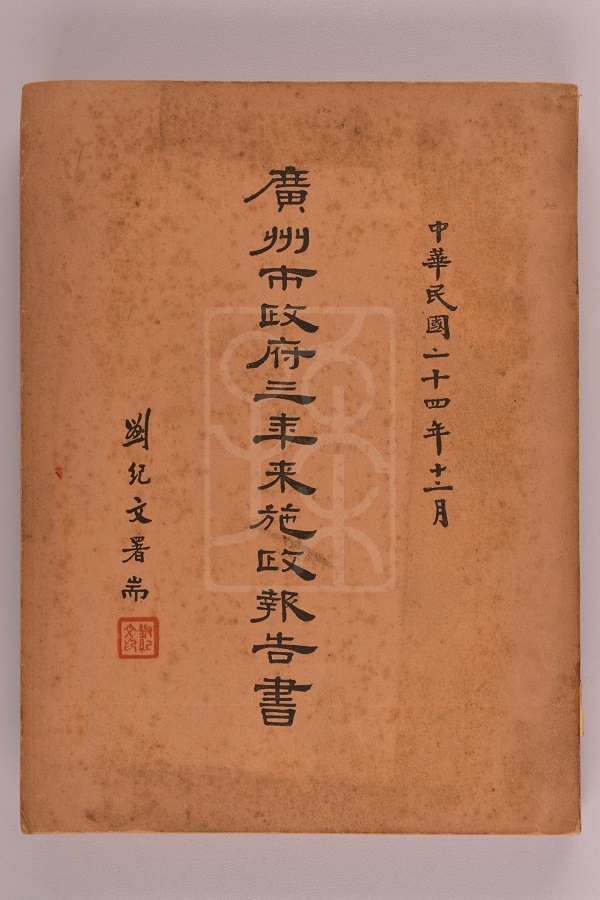 中華民國二十四年十二月
廣州市政府三年来施政報告書
劉紀文署耑
劉紀文印